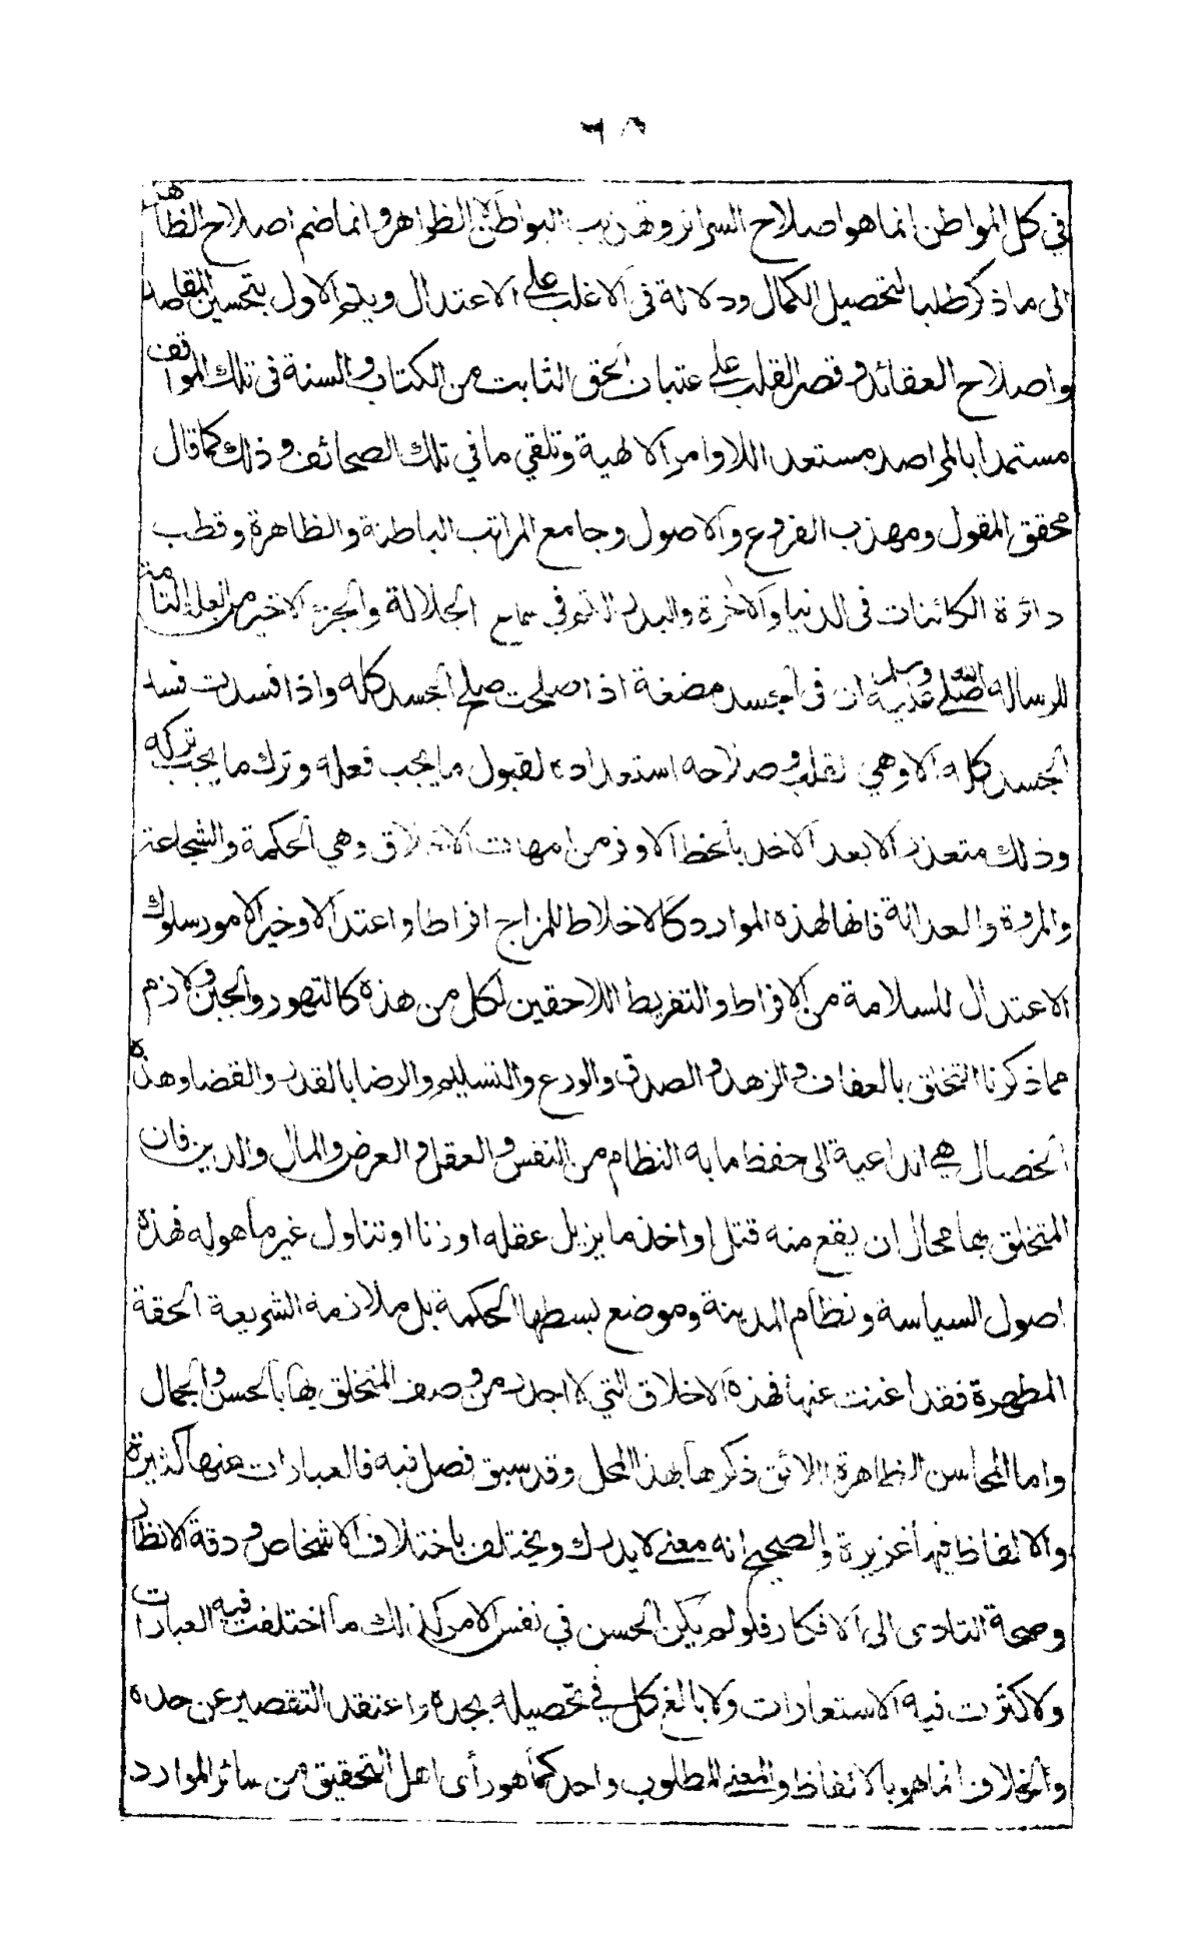 في كل المواطن انما هو اصلاح السرائر وتهذيب البواطن لا الظواهر وانما ضم اصلاح الظاهر
الى ما ذكر طلبا لتحصيل الكمال ودلالة فى الاغلب على الاعتدال ويتم الاول بتحسين المقاصد
واصلاح العقائد وقصر القلب على عتبات الحق الثابت من الكتاب والسنة فى تلك المواقف
مستمدا بالمراصد مستعدا للاوامر الالهية وتلقي ما في تلك الصحائف وذلك كما قال
محقق المقول ومهذب الفروع والاصول وجامع المراتب الباطنة والظاهرة وقطب
دائرة الكائنات فى الدنيا والاخرة والبدر في سماء الجلالة والجزء الاخير من العلة التامة
للرسالة صلى الله عليه وسلم ان فى الجسد مضغة اذا صلحت صلح الجسد كله واذا فسدت فسد
الجسد كله الا وهي القلب وصلاحه استعداده لقبول ما يجب فعله وترك ما يجب تركه
وذلك متعذر الا بعد الاخذ بالحظ الاوفر من امهات الاخلاق وهي الحكمة والشجاعة
والمروة والعدالة فانها لهذه الموارد كالاخلاط للمزاج افراطا واعتدالا وخير الامور سلوك
الاعتدال للسلامة من الافراط والتفريط اللاحقين لكل من هذه كالتهور والجبن ولازم
مما ذكرنا التخلق بالعفاف والزهد والصدق والورع والتسليم والرضا بالقدر والقضا وهذه
الخصال هي الداعية الى حفظ ما به النظام من النفس والعقل والعرض والمال والدين فان
المتخلق بها محال ان يقع منه قتل او اخذ ما يزيل عقله او زنا او تناول غير ما هو له فهذه
اصول السياسة ونظام المدينة وموضع بسطها الحكمة بل ملازمة الشريعة الحقة
المطهرة فقد اغنت عنها فهذه الاخلاق التي لا اجدر من وصف المتخلق بها بالحسن والجمال
واما المحاسن الظاهرة اللائق ذكرها بهذا المحل وقد سبق فصل فيه فالعبارات عنها كثيرة
والالفاظ فيها غزيرة والصحيح انه معنى لا يدرك ويختلف باختلاف الاشخاص ودقة الانظار
وصحة التادى الى الافكار فلو لم يكن الحسن في نفس الامر كذلك ما اختلفت فيه العبارات
ولا كثرت فيه الاستعارات ولا بالغ كل في تحصيله بجده واعتقد التقصير عن حده
والخلاف انما هو بالالفاظ والمعنى المطلوب واحد كما هو رأى اهل التحقيق من سائر الموارد